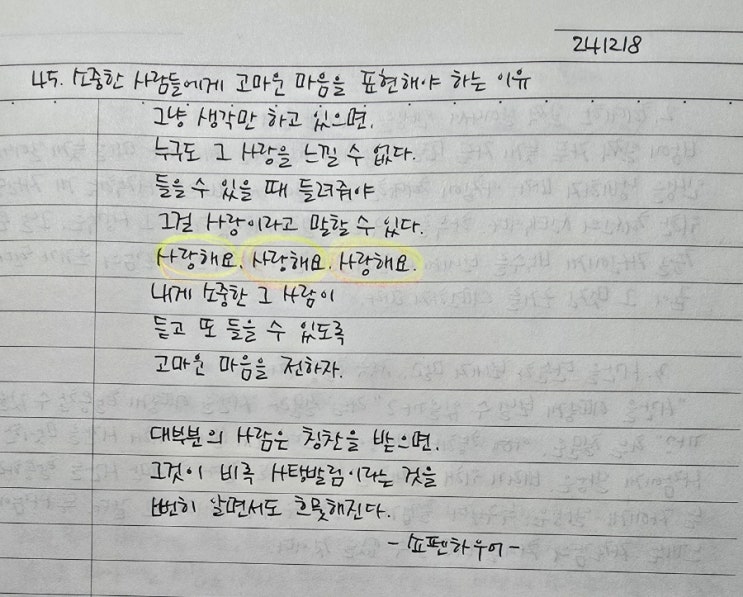 241218
45. 소중한 사람들에게 고마운 마음을 표현해야 하는 이유
그냥 생각만 하고 있으면,
누구도 그 사랑을 느낄 수 없다.
들을 수 있을 때 들려줘야
그걸 사랑이라고 말할 수 있다.
사랑해요. 사랑해요. 사랑해요.
내게 소중한 그 사람이
듣고 또 들을 수 있도록
고마운 마음을 전하자.
대부분의 사람은 칭찬을 받으면,
그것이 비록 사탕발림이라는 것을
뻔히 알면서도 흐뭇해진다.
- 쇼펜하우어 -